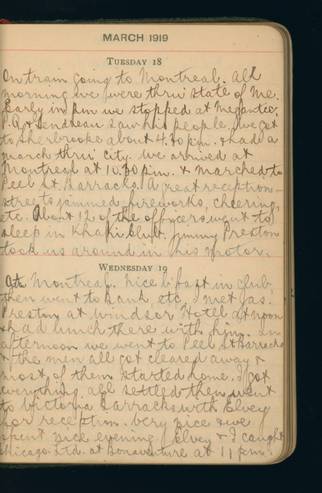 MARCH 1919
TUESDAY 18
On train going to Montreal. All
morning we were thru' state of Me.
Early in p.m we stopped at Megantic.
saw his people. We got
to Sherbrooke about 4.30 p.m. & had a
march thru' city. We arrived at
Montreal at 10.30 p.m. & marched to
Peel St. Barracks. A great reception-
streets jammed, fireworks, cheering,
etc. About 12 of the officers went to
sleep in Khaki Club. Jimmy Preston
took us around in his motor.
WEDNESDAY 19
At Montreal. Nice b'fast in club,
then went to bank etc. I met Jas.
Preston at Windsor Hotel at noon
& had lunch there with him. In
afternoon we went to Peel St Barracks
& the men all got cleared away &
most of them started home. I got
everything all settled then went
to Victoria Barracks with Elvey
for reception. Very nice & we
spent nice evening. Elvey & I caught
Chicago Ltd. at Bonaventure at 11 p.m.